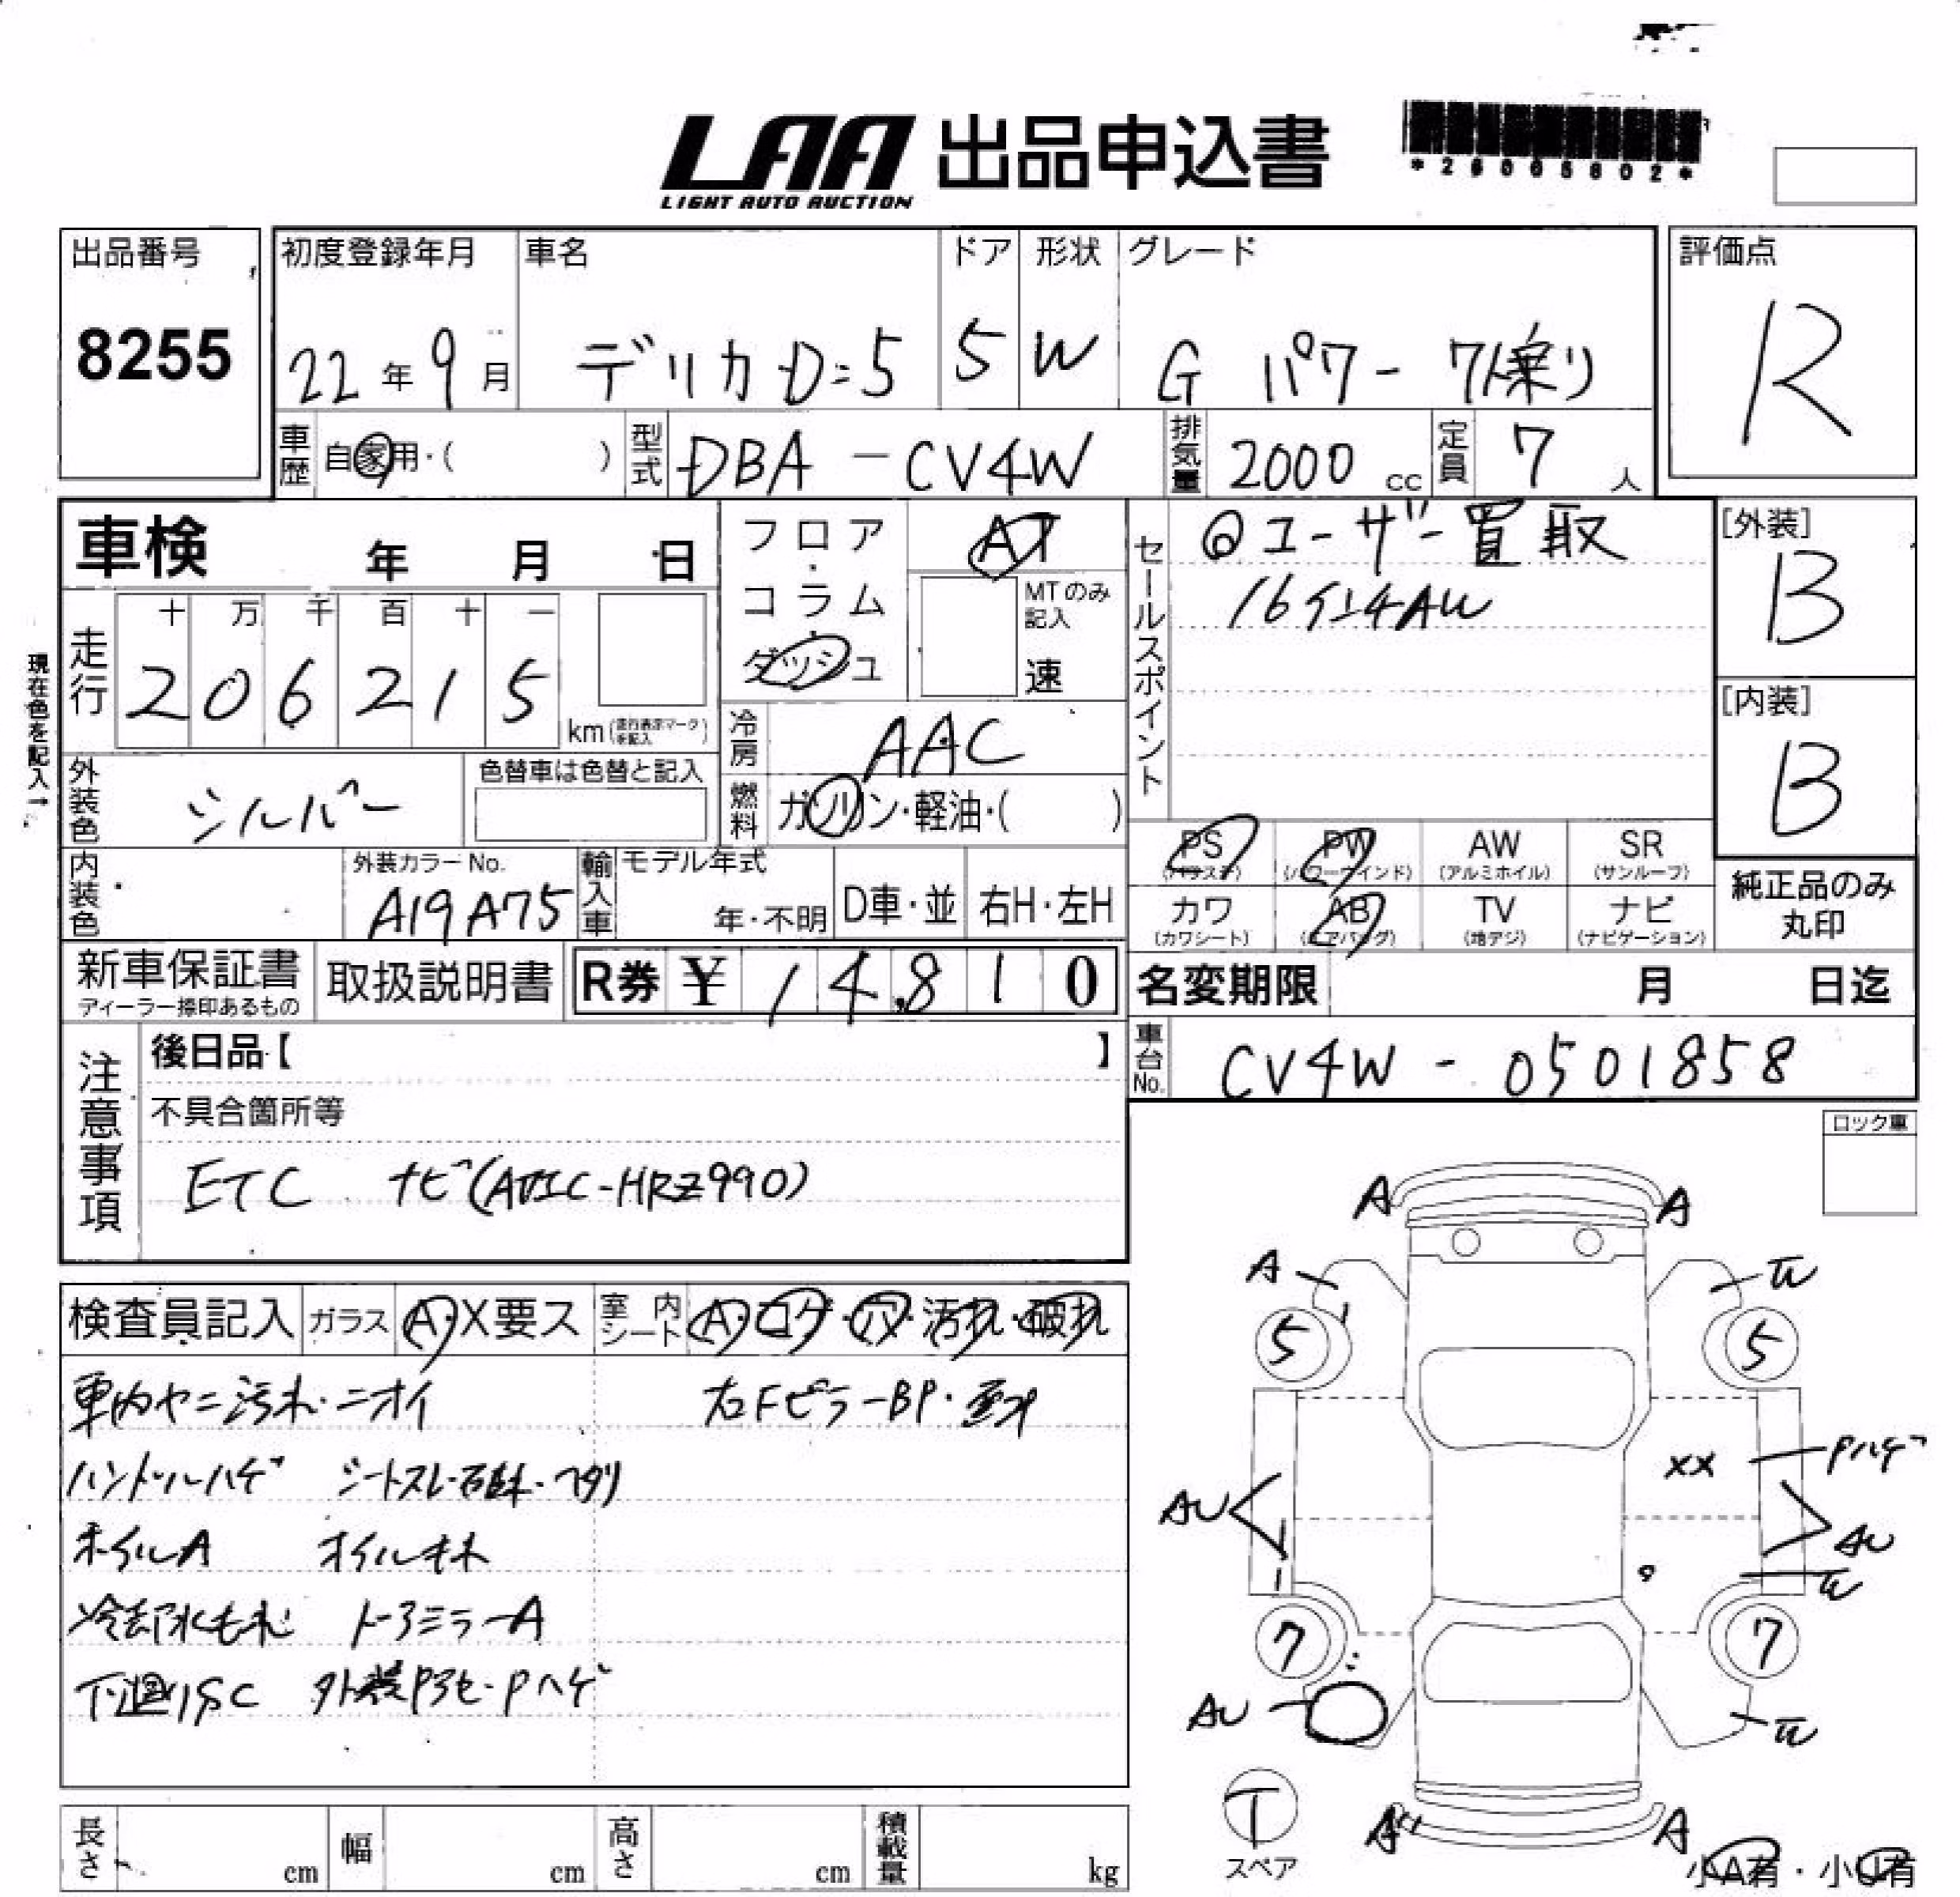 LAA 出品申込書
LIGHT AUTO AUCTION
*26005802*
出品番号
8255
初度登録年月
22年9月
車名
デリカD:5
ドア
5
形状
W
グレード
G パワー 7人乗り
評価点
R
車歴 自家用・( )
型式 DBA-CV4W
排気量 2000 cc
定員 7 人
車検 年 月 日
フロア・コラム・ダッシュ
AT
MTのみ記入
速
セールスポイント
◎ユーザー買取
16インチAW
[外装]
B
[内装]
B
現在色を記入→
走行
十 万 千 百 十 一
2 0 6 2 1 5
km(走行表示マークを記入)
冷房 AAC
燃料 ガソリン・軽油・( )
外装色 シルバー
色替車は色替と記入
内装色
外装カラーNo.
A19A75
輸入車
モデル年式
年・不明
D車・並
右H・左H
PS
(パワステ)
PW
(パワーウインド)
AW
(アルミホイル)
SR
(サンルーフ)
カワ
(カワシート)
AB
(エアバッグ)
TV
(地デジ)
ナビ
(ナビゲーション)
純正品のみ
丸印
新車保証書
ディーラー捺印あるもの
取扱説明書
R券 ¥ 14,810
名変期限 月 日迄
車台No. CV4W-0501858
注意事項
後日品【 】
不具合箇所等
ETC ナビ(AVIC-HRZ990)
ロック車
検査員記入
ガラス A・X要ス
室内シート A・コゲ・穴・汚れ・破れ
車内ヤニ汚れ・ニオイ 右FピラーBP・歪み
ハンドルハゲ シートスレ・破れ・ヘタリ
ホイルA オイルモレ
冷却水もれ ドアミラーA
下廻りSC 外装Pアセ・Pハゲ
A A
A W
5 5
XX Pハゲ
AU AU
W
7 7
AU W
T
スペア
A A
小A有・小U有
長さ cm
幅 cm
高さ cm
積載量 kg